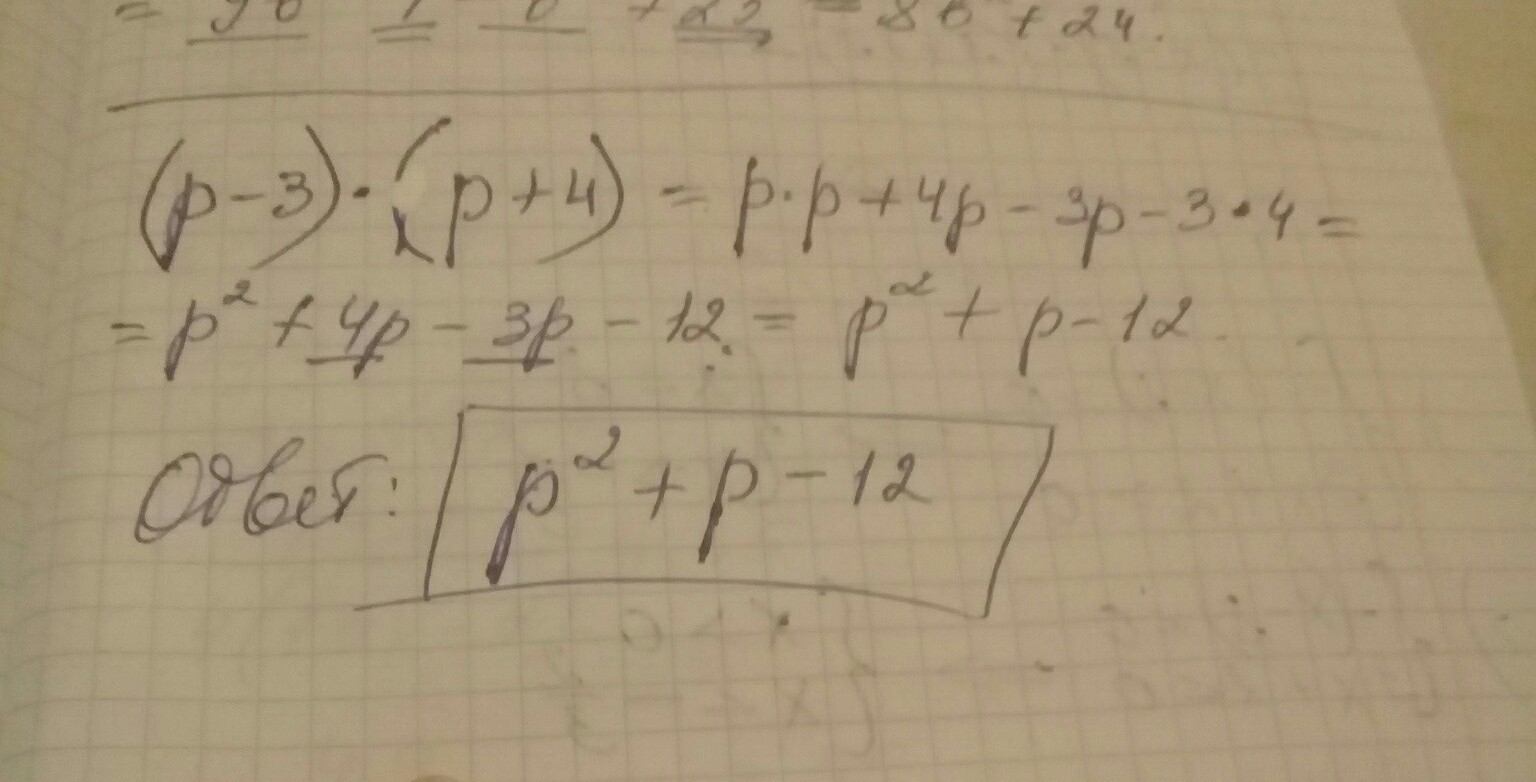 = 8b + 24.
(p - 3) · (p + 4) = p · p + 4p - 3p - 3 · 4 =
= p² + 4p - 3p - 12 = p² + p - 12
Ответ: p² + p - 12